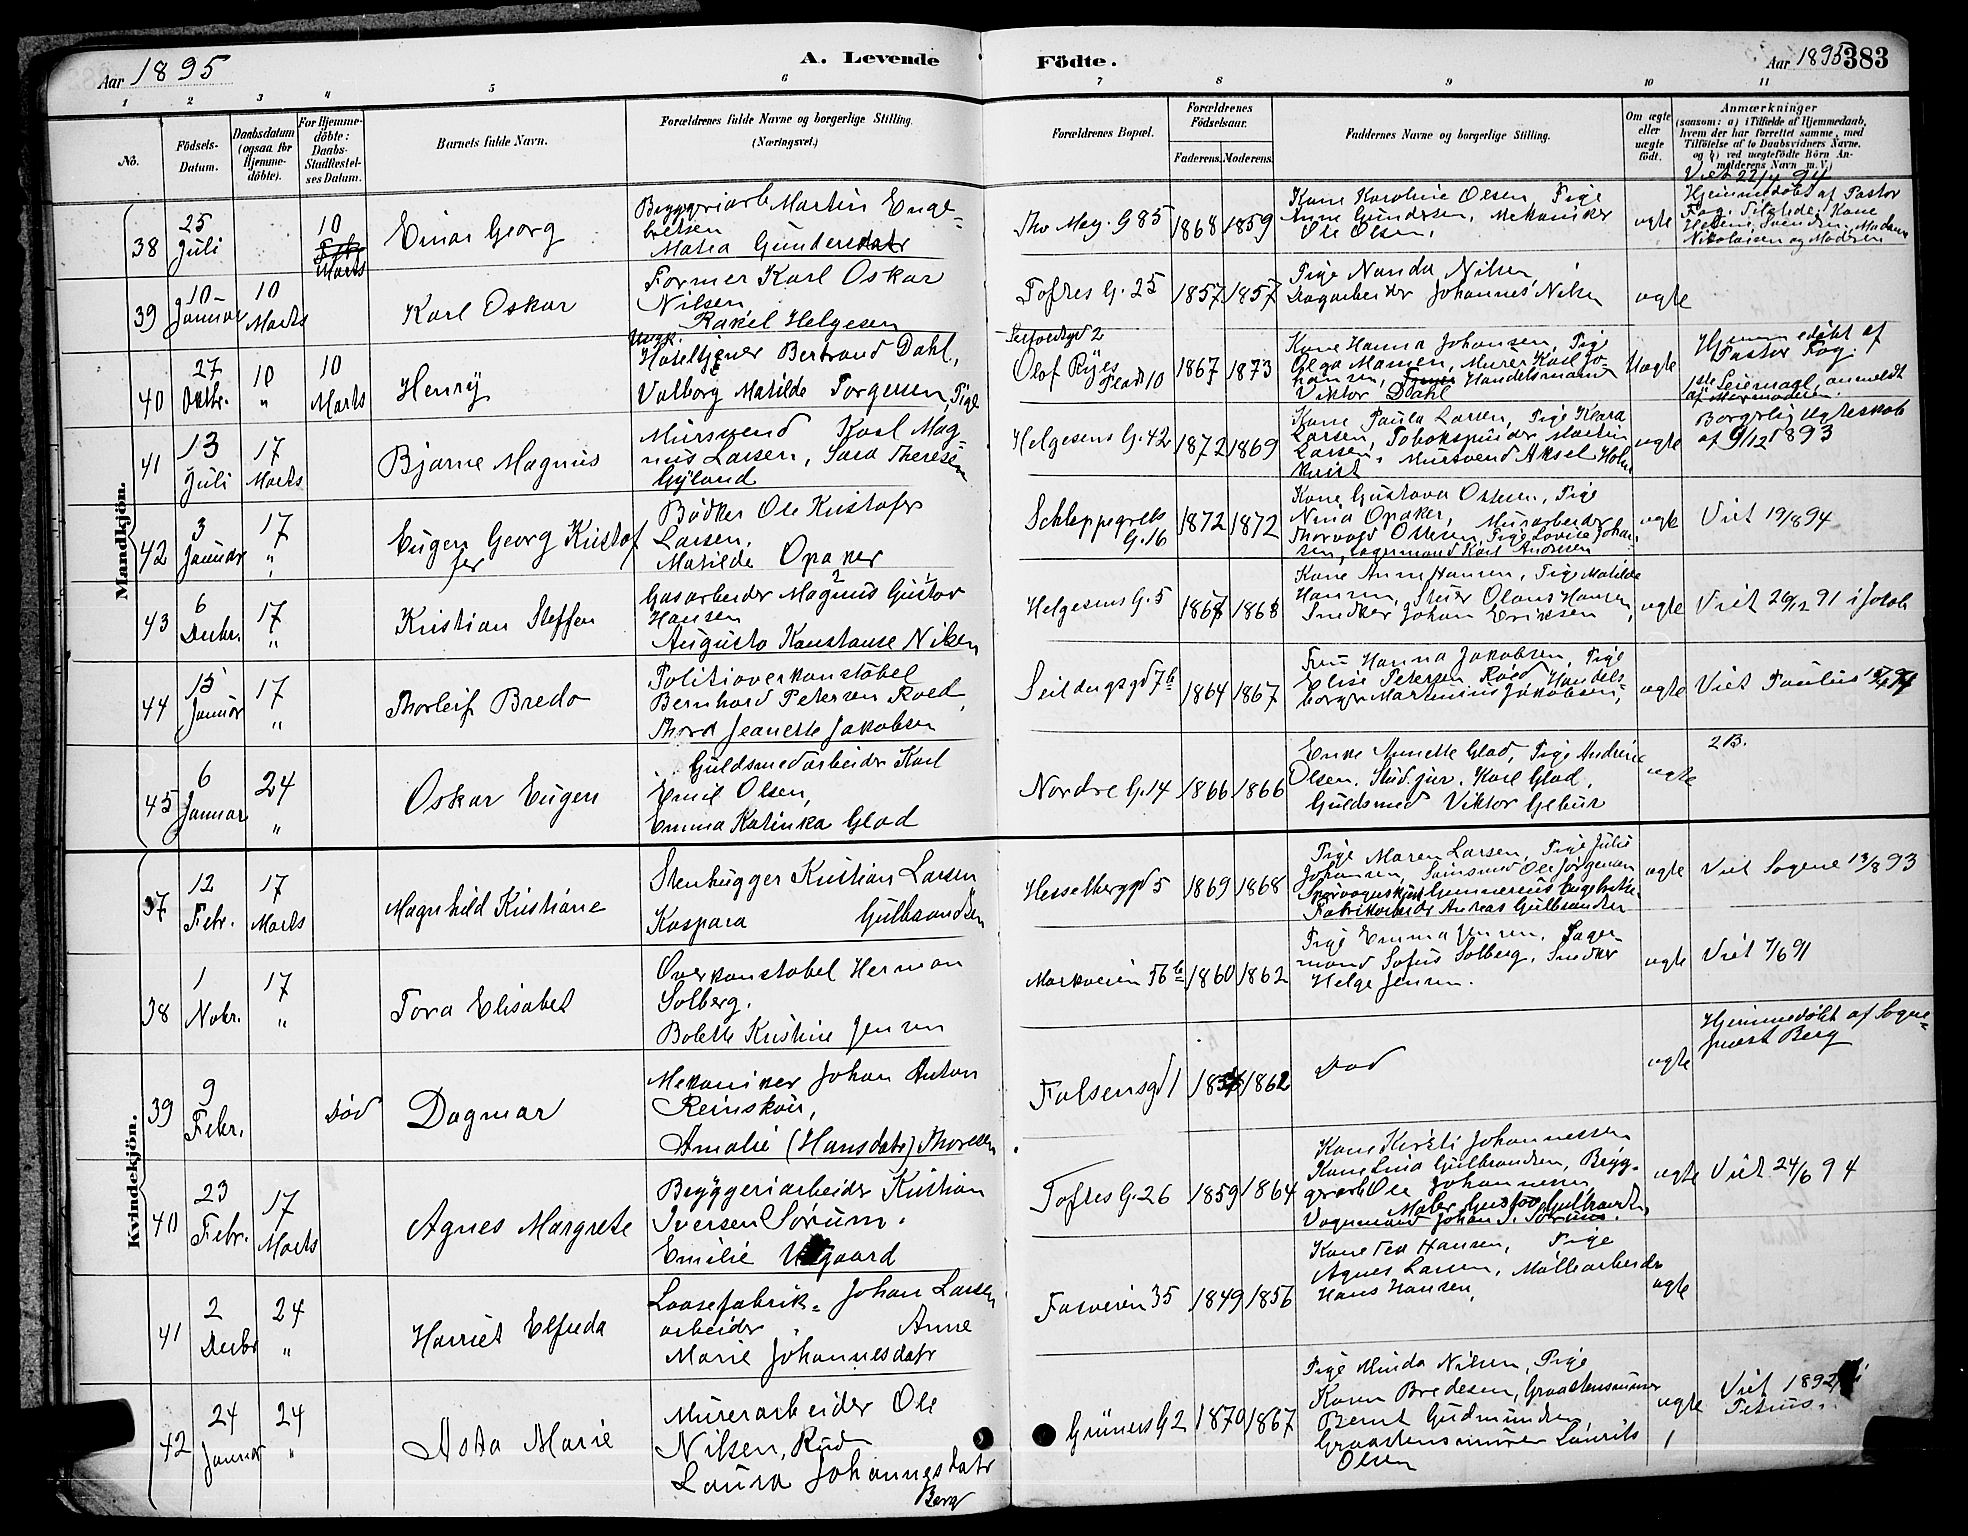 Aar 1895
A. Levende
Födte.
Aar 1895
383
1 2 3 4 5 6 7 8 9 10 11
No.
Födsels-
Datum.
Daabsdatum
(ogsaa for
Hjemme-
döbte).
For Hjemme-
döbte:
Daabs-
Stadfæstel-
ses Datum.
Barnets fulde Navn.
Forældrenes fulde Navne og borgerlige Stilling.
(Næringsvei.)
Forældrenes Bopæl.
Forældrenes
Födselsaar.
Faderens. Moderens.
Faddernes Navne og borgerlige Stilling.
Om ægte
eller
uægte
født.
Anmærkninger
(saasom: a) i Tilfælde af Hjemmedaab,
hvem der har forrettet samme, med
Tilföielse af to Daabsvidners Navne,
og b) ved uægtefödte Börn An-
melderens Navn m. V.)
Mandkjön.
38
25
Juli
10
Marts
Einar Georg
Bryggeriarb Martin Enge-
bretsen
Maria Gundersdatr
Thv Mey. G 85
1868
1859
Kone Karoline Olsen Pige
Anne Gundersen, Mekaniker
Ole Olsen.
ægte
Viet 22/4 94
Hjemmedöbt af Pastor
Kone
Svendsen, Madame
Nikolaisen og Moderen
39
10
Januar
10
Marts
Karl Oskar
Former Karl Oskar
Nilsen
Rakel Helgesen
Toftes G. 25
1857
1857
Pige Nanda Nilsen
Dagarbeider Johannes Nilsen
ægte
40
27
Oktbr.
10
"
10
Marts
Henry
Hoteltjener Bertrand Dahl,
Valborg Matilde Torgersen, Pige
Olof Ryes
Plads 10
1867
1873
Kone Hanna Johansen, Pige
Olga Hansen, Murer Karl Jo-
hansen, Handelsmand
Viktor Dahl
Uægte
Hjemmedöbt af
Pastor Fog
1ste Leiermaal, anmeldt
af Mormoderen.
41
13
Juli
17
Marts
Bjarne Magnus
Mursvend Karl Mag-
nus Larsen, Sara Theresen
Gyland
Helgesens G. 42
1872
1869
Kone Paula Larsen, Pige Klara
Larsen, Tobakspinder Martin
Larsen, Mursvend Aksel Holm-
kvist
ægte
Borgerlig Ægteskab
af 9/12 1893
42
3
Januar
17
"
Eugen Georg Kristof
fer
Bödker Ole Kristofer
Larsen,
Matilde Opaker
Schleppegrells
G. 16
1872
1872
Kone Gustava Ottesen, Pige
Nina Opaker, Murarbeider
Thorvald Ottesen, Pige Lovise Johan-
sen, Lagermand Karl Andersen
ægte
Viet 19/8 94
43
6
Decbr.
17
"
Kristian Steffen
Gasarbeider Magnus Gustav
Hansen
Augusta Konstanse Nilsen
Helgesens G. 5
1868
1868
Kone Anne Hansen, Pige Matilde
Hansen, Olaus Hansen
Snedker Johan Eriksen
ægte
Viet 26/12 91 i Jakob
44
15
Januar
17
"
Thorleif Bredo
Politioverkonstabel
Bernhard Petersen Roed,
Thora Jeanette Jakobsen
Seildugsgd 7b
1864
1867
Fru Hanna Jakobsen, Pige
Elise Petersen Roed, Handels-
borger Martinius Jakobsen,
ægte
Viet Paulus
45
6
Januar
24
"
Oskar Eugen
Guldsmedarbeider Karl
Emil Olsen,
Emma Katinka Glad
Nordre G. 14
1866
1866
Enke Annette Glad, Pige Andrine
Olsen, Stud. jur. Karl Glad,
Guldsmed Viktor Gebur
ægte
2 B.
Kvindekjön.
37
12
Febr.
17
Marts
Magnhild Kristiane
Stenhugger Kristian Larsen
Kaspara Gulbrandsen
Hesselberggd 5
1869
1868
Pige Maren Larsen, Pige Julie
Johansen, Ole Jörgensen
Fabrikarbeider Andreas Gulbrandsen
ægte
Viet Sogne 13/8 93
38
1
Novbr.
17
"
Tora Elisabet
Overkonstabel Herman
Solberg.
Bolette Kristine Jensen
Markveien 56b
1860
1862
Pige Emma Jensen, Lager-
mand Sofus Solberg, Snedker
Helge Jensen.
ægte
Viet 7/6 91
39
9
Febr.
Död
Dagmar
Mekaniker Johan Anton
Reinskou,
Amalie (Hansdatr) Thoresen
Falsensgd 1
1862
Död
ægte
Hjemmedöbt af Sogne-
præst Berg
40
23
Febr.
17
Marts
Agnes Margrete
Bryggeriarbeider Kristian
Iversen Sörum.
Emilie
Toftes G. 26
1859
1864
Kone Kirsti Johannessen
Kone Lina Gulbrandsen, Bryg-
geriarb Ole Johannesen
Maler Gustav Gulbrandsen
Vognmand Johan I. Sörum.
ægte
Viet 24/6 94
41
2
Decbr
24
"
Harriet Elfrida
Laasefabrik- Johan Larsen
arbeider Anne
Marie Johannesdatr
Fosveien 35
1849
1856
Kone Tea Hansen, Pige
Agnes Larsen, Möllearbeider
Hans Hansen,
ægte
42
24
Januar
24
"
Asta Marie
Murerarbeider Ole
Nilsen, Rud
Laura Johannesdatr
Berg
Grüners G 2
1870
1867
Pige Minda Nilsen, Pige
Karen Bredesen, Graastensmurer
Bernt Gudmundsen,
Graastensmurer Laurits
Olsen
ægte
Viet 1892
Petrus.